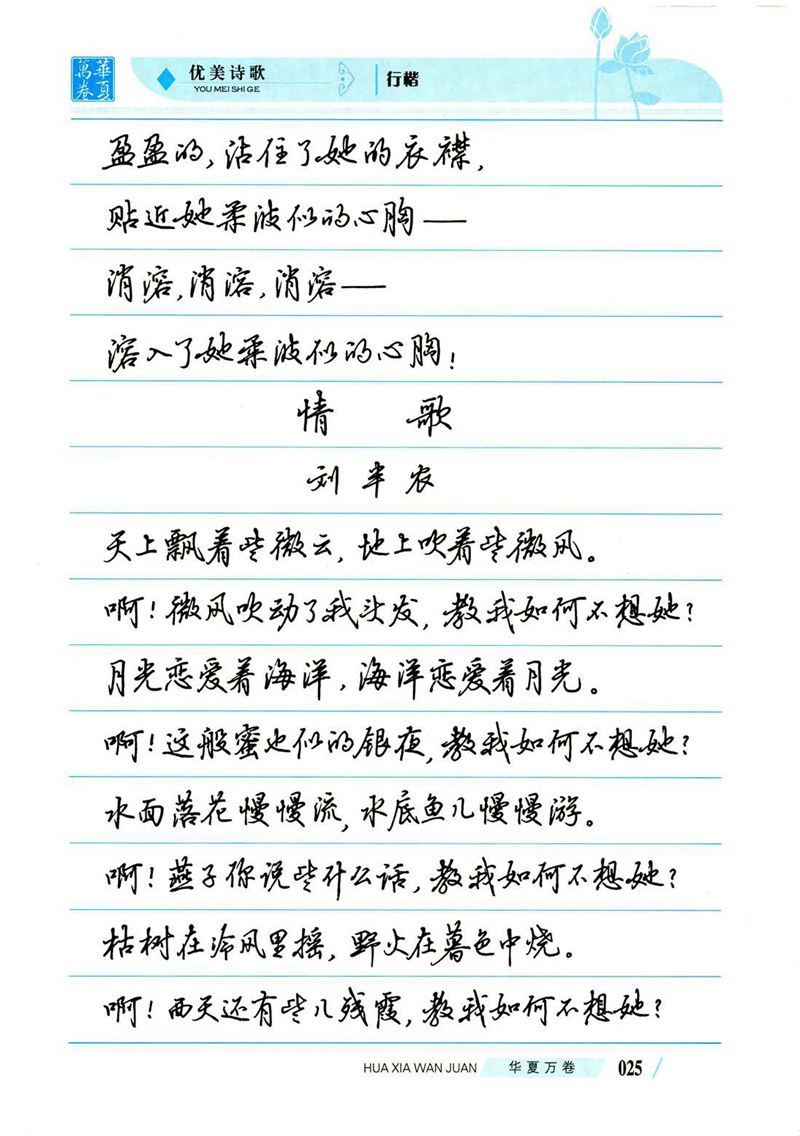 華夏
萬卷
优美诗歌
YOU MEI SHI GE
行楷
盈盈的，沾住了她的衣襟，
贴近她柔波似的心胸——
消溶，消溶，消溶——
溶入了她柔波似的心胸！
情 歌
刘半农
天上飘着些微云，地上吹着些微风。
啊！微风吹动了我头发，教我如何不想她？
月光恋爱着海洋，海洋恋爱着月光。
啊！这般蜜也似的银夜，教我如何不想她？
水面落花慢慢流，水底鱼儿慢慢游。
啊！燕子你说些什么话，教我如何不想她？
枯树在冷风里摇，野火在暮色中烧。
啊！西天还有些儿残霞，教我如何不想她？
HUA XIA WAN JUAN 华夏万卷 025